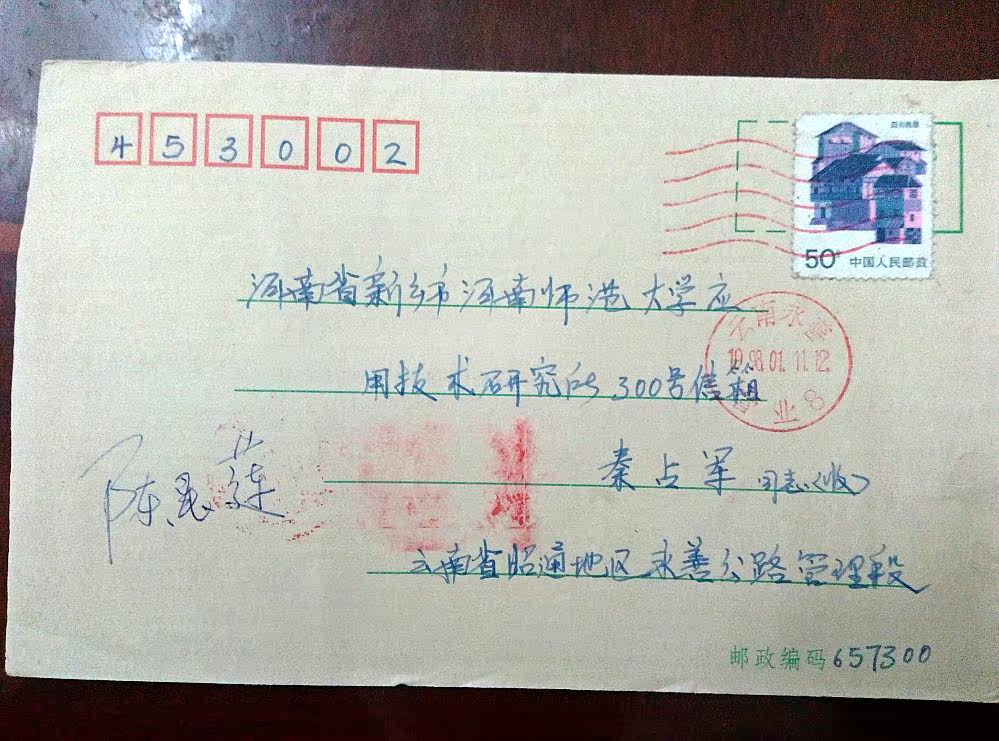 453002
50分 中国人民邮政
河南省新乡市河南师范大学应
云南永善
1998.01.11.12
业 8
用技术研究所300号信箱
秦占军 同志(收)
云南省昭通地区永善公路管理段
邮政编码657300